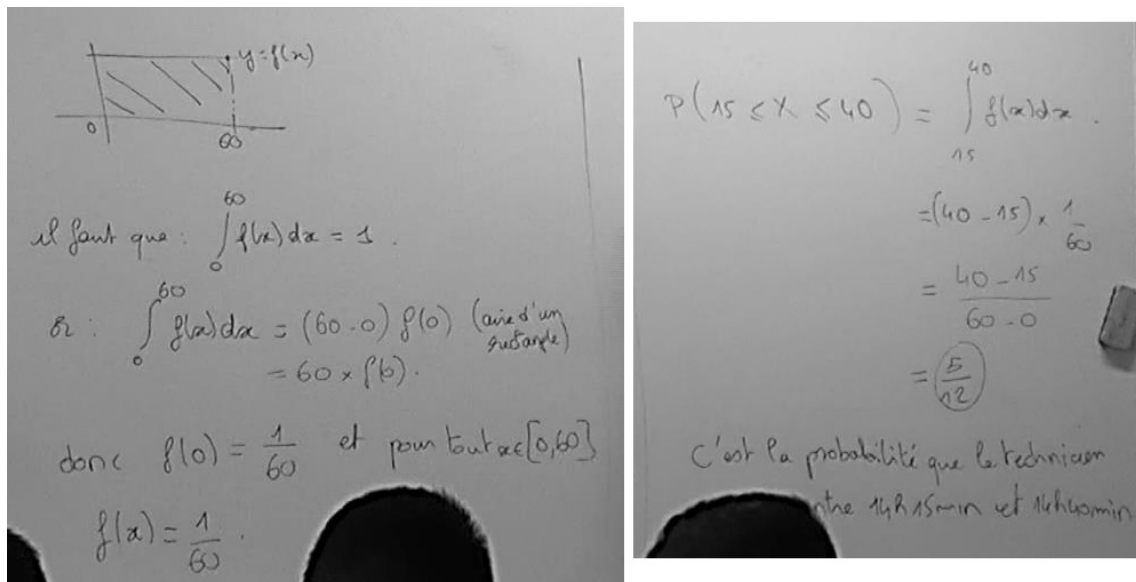 y = f(x)
0
60
il faut que : ∫₀⁶⁰ f(x) dx = 1 .
Or : ∫₀⁶⁰ f(x) dx = (60 - 0) f(0) (aire d'un rectangle)
= 60 × f(0) .
donc f(0) = 1/60 et pour tout x ∈ [0,60]
f(x) = 1/60 .
P(15 ≤ X ≤ 40) = ∫₁₅⁴⁰ f(x) dx .
= (40 - 15) × 1/60
= (40 - 15)/(60 - 0)
= 5/12
C'est la probabilité que le technicien
ntre 14h15min et 14h40min